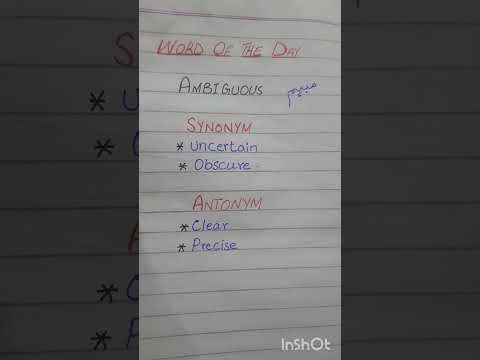 WORD OF THE DAY
AMBIGUOUS مبہم
SYNONYM
* Uncertain
* Obscure
ANTONYM
* Clear
* Precise
InShOt